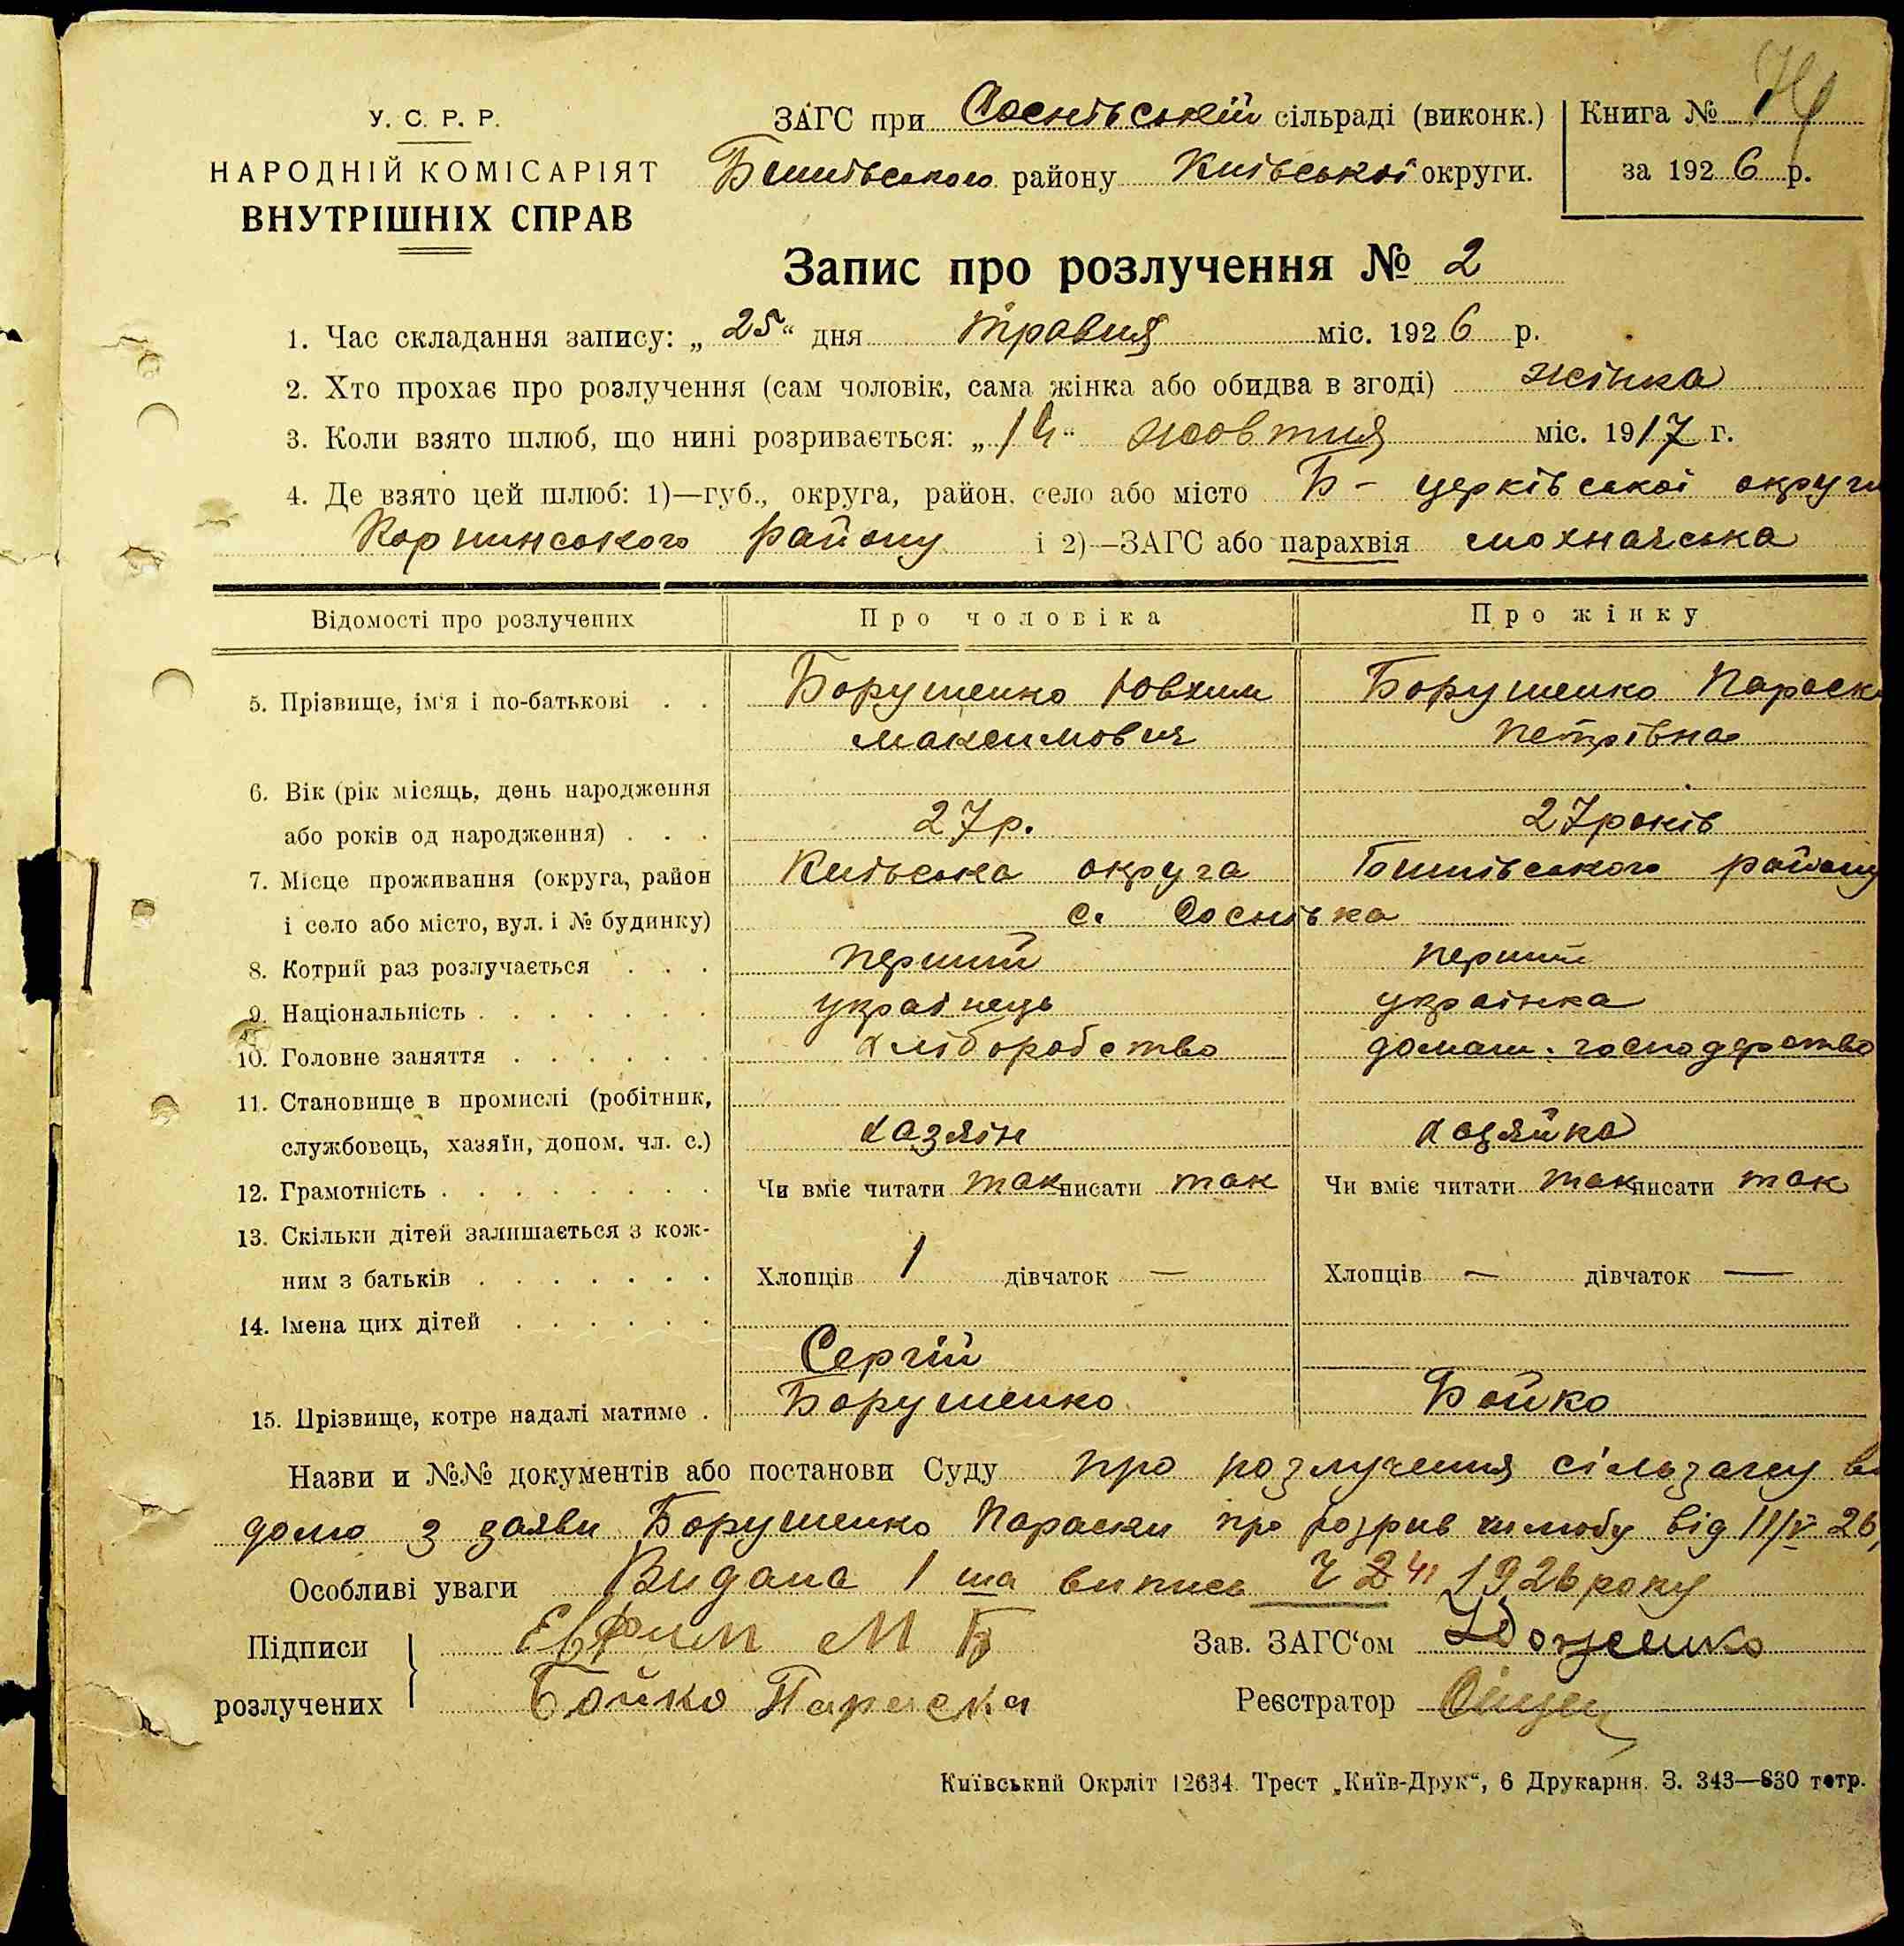 У. С. Р. Р.
НАРОДНІЙ КОМІСАРІЯТ
ВНУТРІШНІХ СПРАВ
ЗАГС при Соснівській сільраді (виконк.)
Бишівського району Київської округи.
Книга №
за 1926 р.
Запис про розлучення № 2
1. Час складання запису: „25“ дня травня міс. 1926 р.
2. Хто прохає про розлучення (сам чоловік, сама жінка або обидва в згоді) жінка
3. Коли взято шлюб, що нині розривається: „14“ жовтня міс. 1917 г.
4. Де взято цей шлюб: 1)—губ., округа, район, село або місто Б- церківської округи
Корнинського району і 2)—ЗАГС або парахвія мохначська
Відомості про розлучених Про чоловіка Про жінку
5. Прізвище, ім‘я і по-батькові . . Борушенко Ювхим Борушенко Параск
максимович петрівна
6. Вік (рік місяць, день народження
або років од народження) . . . 27р. 27років
7. Місце проживання (округа, район Київська округа Бишівського району
і село або місто, вул. і № будинку) с. Соснівка
8. Котрий раз розлучається . . . перший перший
9. Національність . . . . . . . українець українка
10. Головне заняття . . . . . . хліборобство домаш. господарство
11. Становище в промислі (робітник,
службовець, хазяїн, допом. чл. с.) хазяїн хазяйка
12. Грамотність . . . . . . . . Чи вміє читати так писати так Чи вміє читати так писати так
13. Скільки дітей залишається з кож-
ним з батьків . . . . . . . Хлопців 1 дівчаток — Хлопців — дівчаток —
14. Імена цих дітей . . . . . .
Сергій
15. Прізвище, котре надалі матиме . Борушенко Бойко
Назви и №№ документів або постанови Суду про розлучення сільзагсу ві
домо з заяви Борушенко Параски про розрив шлюбу від 11/V 26
Особливі уваги Видана 1 ша випись 1926 року
Підписи Евфим М Б Зав. ЗАГС‘ом
розлучених Бойко Параска Реєстратор
Київський Окрліт 12634. Трест „Київ-Друк“, 6 Друкарня. З. 343—830 тетр.